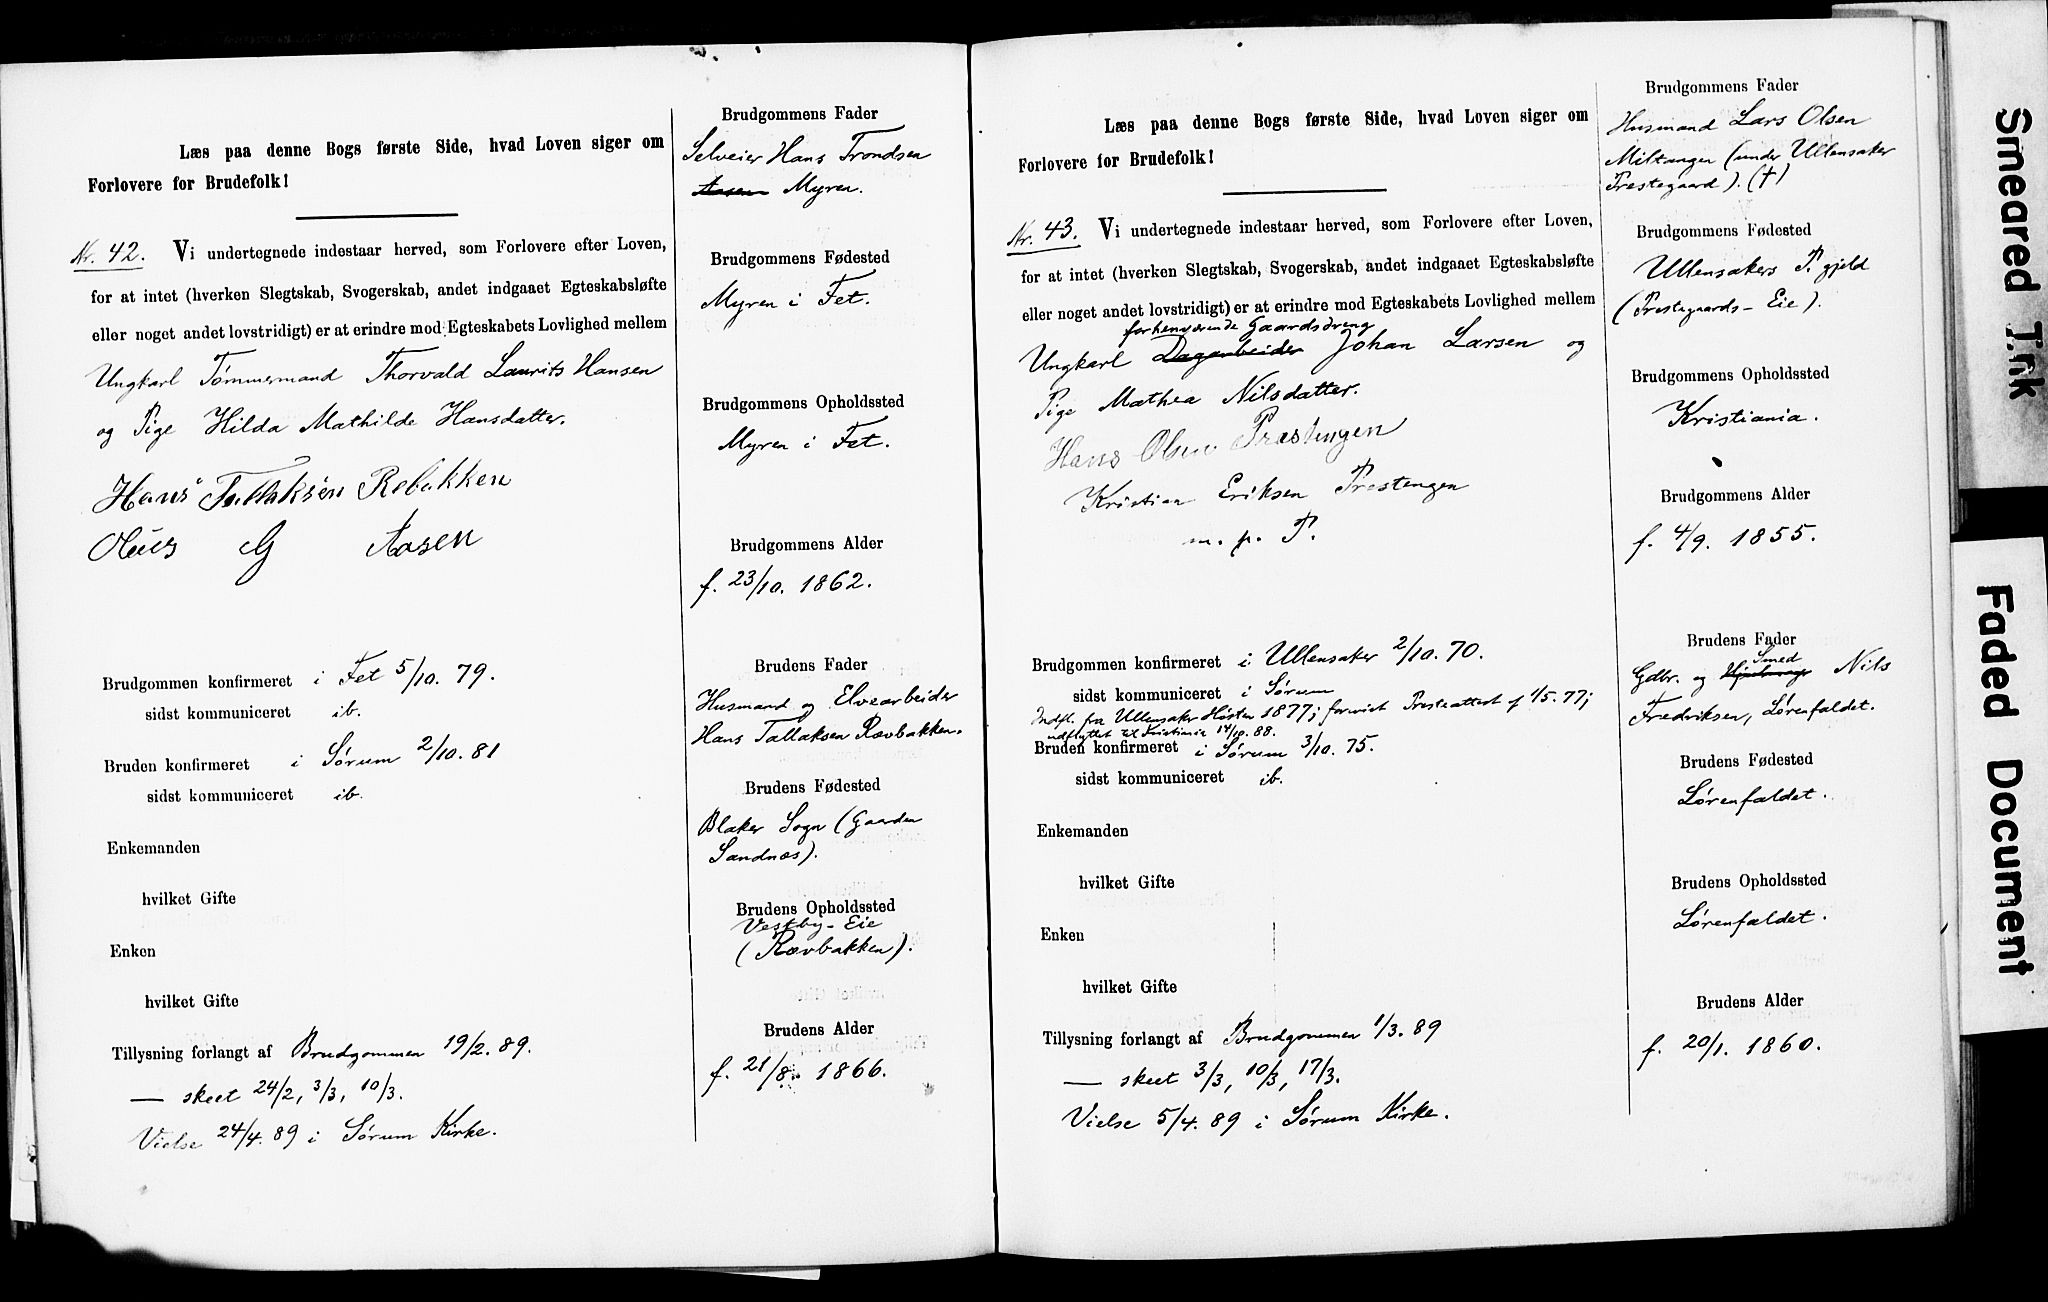 Læs paa denne Bogs første Side, hvad Loven siger om
Forlovere for Brudefolk!
Nr. 42. Vi undertegnede indestaar herved, som Forlovere efter Loven,
for at intet (hverken Slegtskab, Svogerskab, andet indgaaet Egteskabsløfte
eller noget andet lovstridigt) er at erindre mod Egteskabets Lovlighed mellem
Ungkarl Tømmermand Thorvald Laurits Hansen
og Pige Hilda Mathilde Hansdatter.
Hans Tallaksen Rebakken
Olaus G Aasen
Brudgommen konfirmeret i Fet 5/10. 79.
sidst kommuniceret ib.
Bruden konfirmeret i Sørum 2/10. 81
sidst kommuniceret ib.
Enkemanden
hvilket Gifte
Enken
hvilket Gifte
Tillysning forlangt af Brudgommen 19/2. 89.
— skeet 24/2, 3/3, 10/3.
Vielse 24/4. 89 i Sørum Kirke.
Brudgommens Fader
Selveier Hans Trondsen
Aasen Myren.
Brudgommens Fødested
Myren i Fet.
Brudgommens Opholdssted
Myren i Fet.
Brudgommens Alder
f. 23/10. 1862.
Brudens Fader
Husmand og Elvearbeider
Hans Tallaksen Rævbakken.
Brudens Fødested
Blaker Sogn (Gaarden
Sandnæs).
Brudens Opholdssted
Vestby-Eie
(Rævbakken).
Brudens Alder
f. 21/8. 1866.
Læs paa denne Bogs første Side, hvad Loven siger om
Forlovere for Brudefolk!
Nr. 43. Vi undertegnede indestaar herved, som Forlovere efter Loven,
for at intet (hverken Slegtskab, Svogerskab, andet indgaaet Egteskabsløfte
eller noget andet lovstridigt) er at erindre mod Egteskabets Lovlighed mellem
forhenværende Gaardsdreng
Ungkarl Dagarbeider Johan Larsen og
Pige Mathea Nilsdatter.
Hans Olsen Præstengen
Kristian Eriksen Prestengen
m. p. P.
Brudgommen konfirmeret i Ullensaker 2/10. 70.
sidst kommuniceret i Sørum
Indfl. fra Ullensaker Høsten 1877; forevist Presteattest af 1/5. 77;
udflyttet til Kristiania 14/10. 88.
Bruden konfirmeret i Sørum 3/10. 75.
sidst kommuniceret ib.
Enkemanden
hvilket Gifte
Enken
hvilket Gifte
Tillysning forlangt af Brudgommen 1/3. 89
— skeet 3/3, 10/3, 17/3.
Vielse 5/4. 89 i Sørum Kirke.
Brudgommens Fader
Husmand Lars Olsen
Miltangen (under Ullensaker
Prestegaard). (†)
Brudgommens Fødested
Ullensakers P. gjeld
(Prestegaards-Eie).
Brudgommens Opholdssted
Kristiania.
Brudgommens Alder
f. 4/9. 1855.
Brudens Fader
Smed
Gdbr. og Nils
Fredriksen, Lørenfaldet.
Brudens Fødested
Lørenfaldet.
Brudens Opholdssted
Lørenfaldet.
Brudens Alder
f. 20/1. 1860.
Smeared Ink
Faded Document